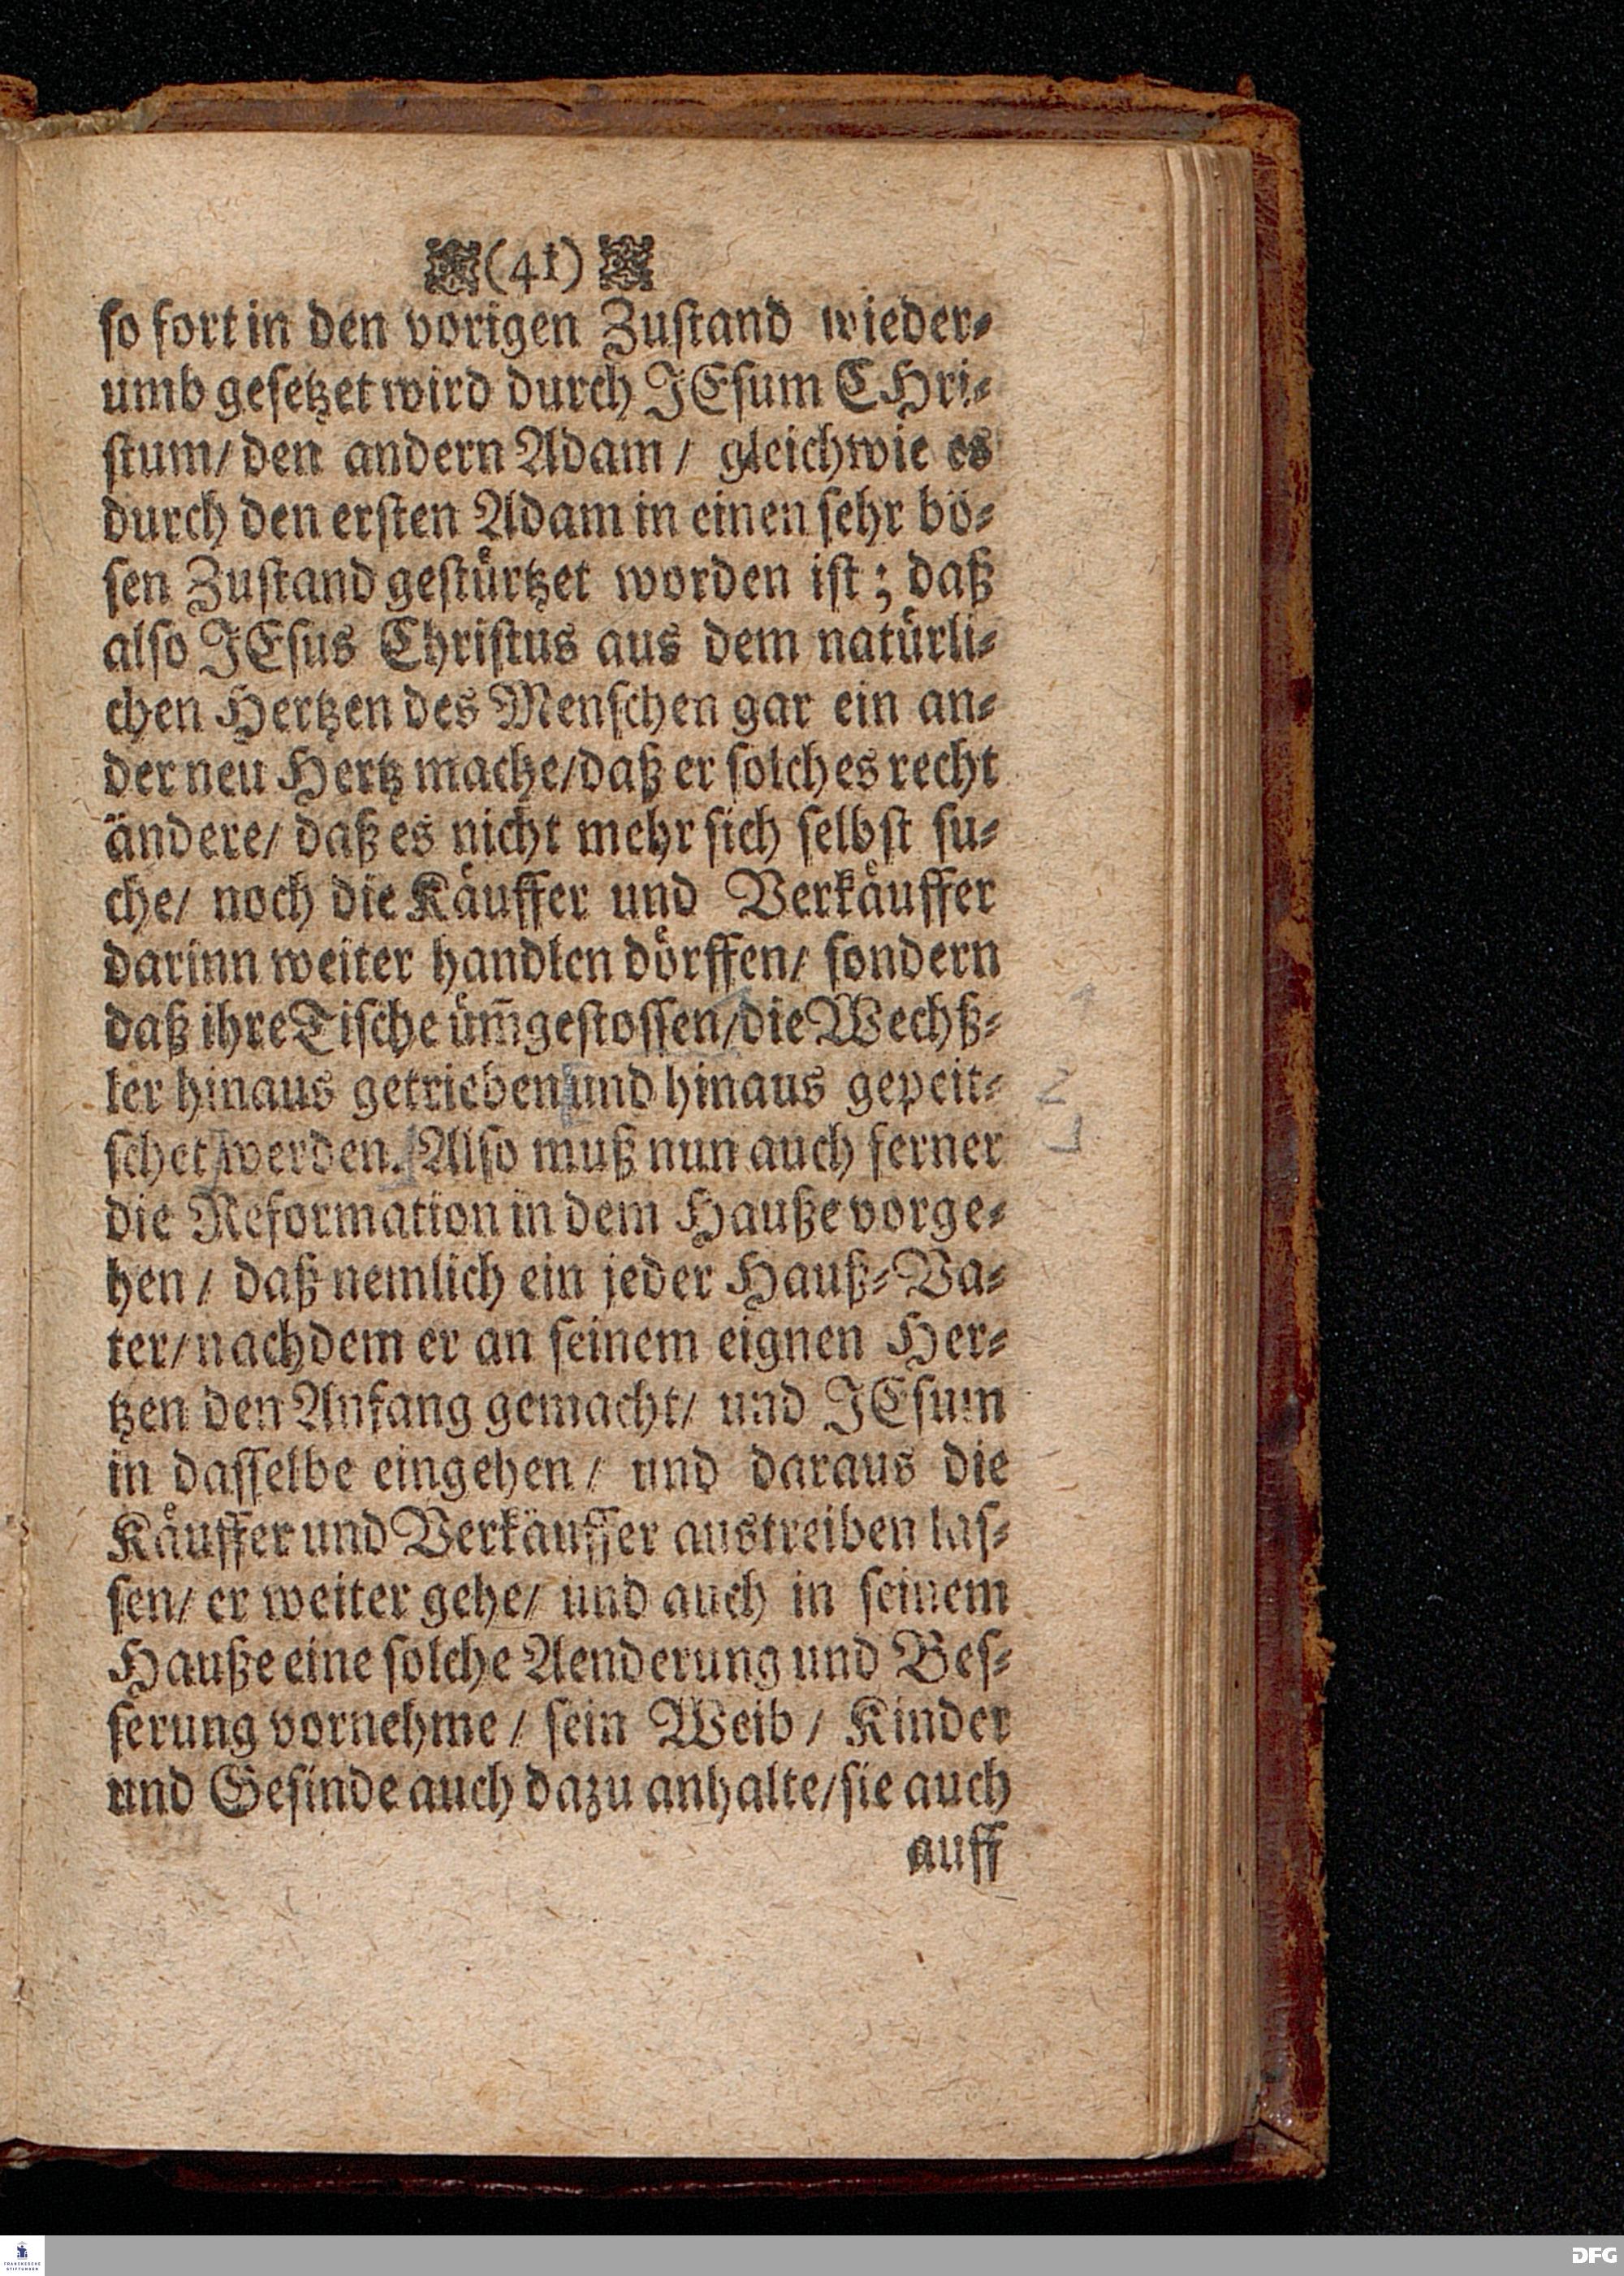 (41)
so fort in den vorigen Zustand wieder-
umb gesetzet wird durch JEsum CHri-
stum/ den andern Adam / gleichwie es
durch den ersten Adam in einen sehr bö-
sen Zustand gestürtzet worden ist; daß
also JEsus Christus aus dem natürli-
chen Hertzen des Menschen gar ein an-
der neu Hertz mache/daß er solches recht
ändere/ daß es nicht mehr sich selbst su-
che/ noch die Käuffer und Verkäuffer
darinn weiter handlen dörffen/ sondern
daß ihre Tische üm̃gestossen/die Wechß-
ler hinaus getrieben und hinaus gepeit-
schet werden. Also muß nun auch ferner
die Reformation in dem Hauße vorge-
hen / daß nemlich ein jeder Hauß-Va-
ter/nachdem er an seinem eignen Her-
tzen den Anfang gemacht/ und JEsum
in dasselbe eingehen / und daraus die
Käuffer und Verkäuffer austreiben las-
sen/ er weiter gehe/ und auch in seinem
Hauße eine solche Aenderung und Bes-
serung vornehme / sein Weib / Kinder
und Gesinde auch dazu anhalte/sie auch
auff
FRANCKESCHE
STIFTUNGEN
DFG